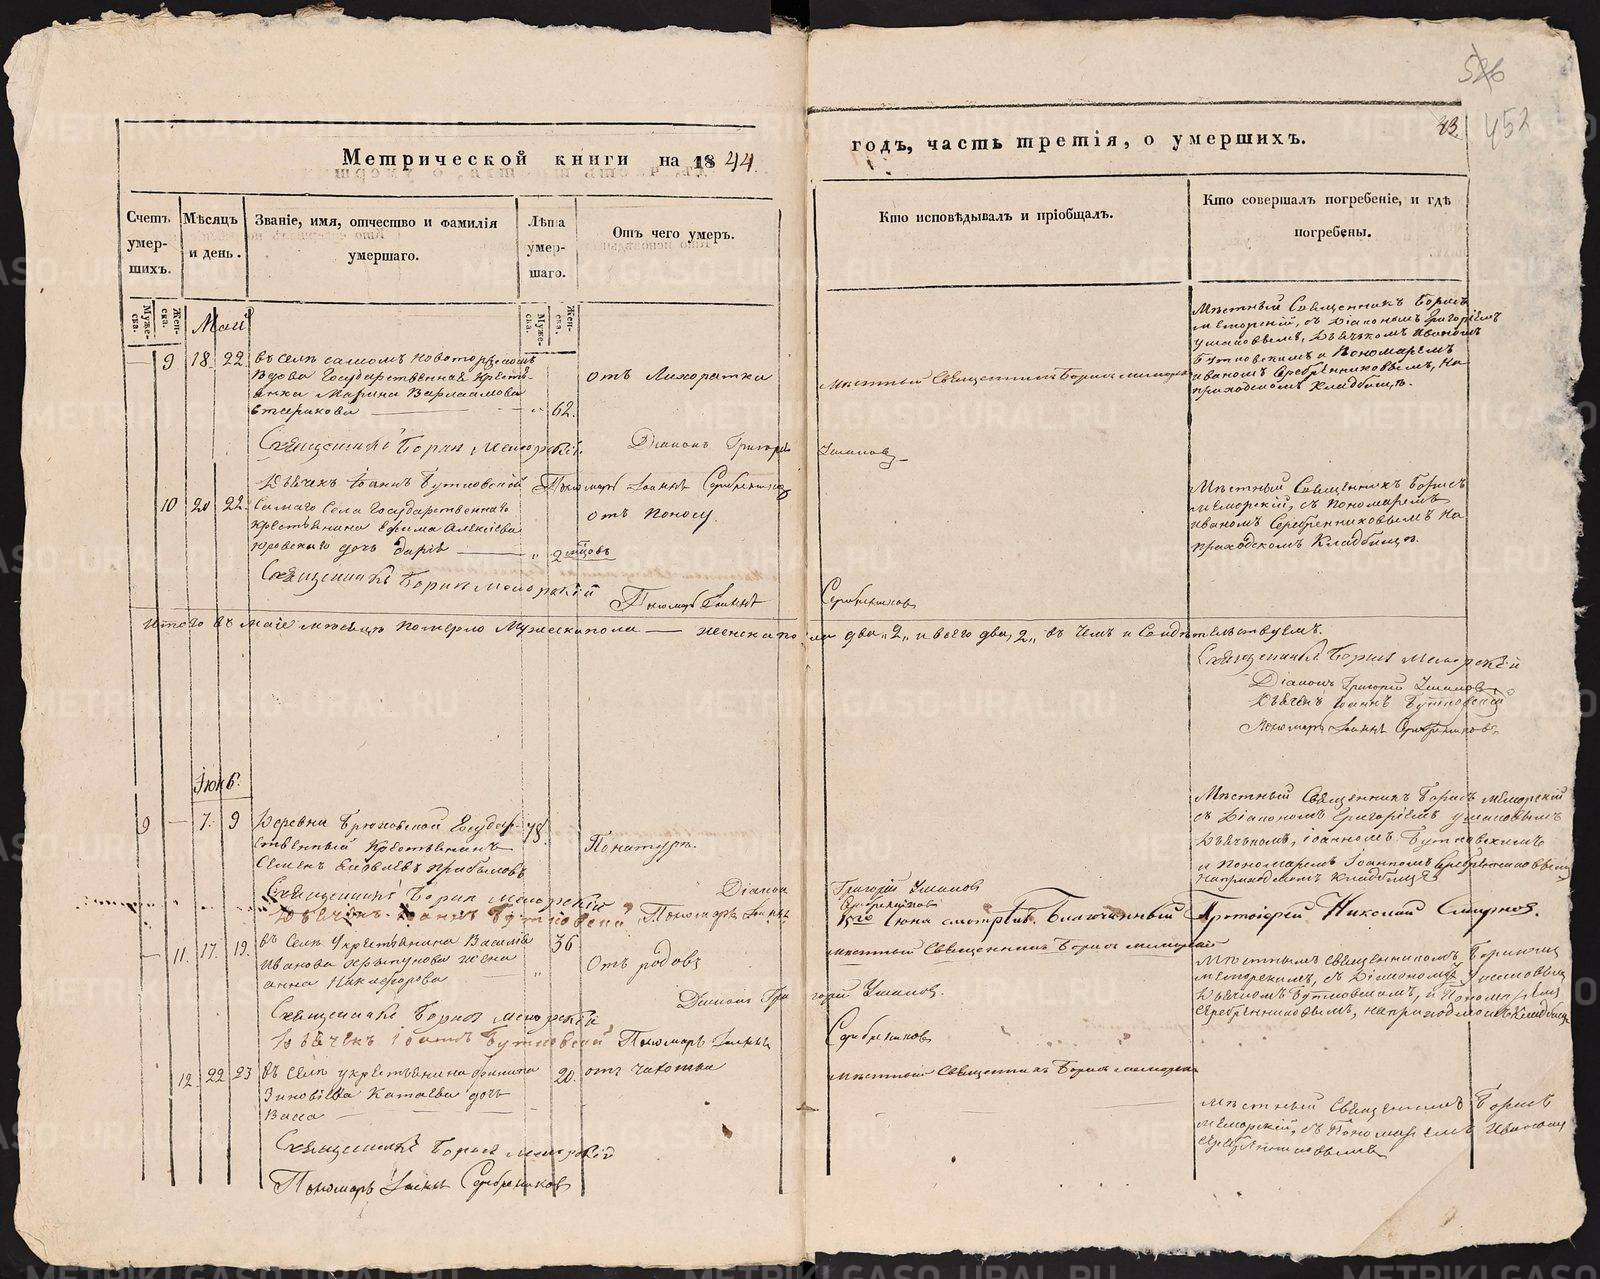 526
452
43.
Метрической книги на 1844.
годъ, часть третія, о умершихъ.
Счетъ умер-шихъ.
Мѣсяцъ и день.
Званіе, имя, отчество и фамилія умершаго.
Лѣта умер-шаго.
Отъ чего умеръ.
Кто исповѣдывалъ и пріобщалъ.
Кто совершалъ погребеніе, и гдѣ погребены.
Муже-ска.
Жен-ска.
Муже-ска.
Жен-ска.
Маій
— 9 18 22
въ селѣ самомъ Новоторжскомъ
вдова Государственная кресть-
янка Марина Варлаамова
62.
отъ Лихорадки
Мѣстный Священникъ Борисъ Меморскій
Мѣстный Священникъ Борисъ
Меморскій, съ Діакономъ Григоріемъ
Ушаковымъ, Дьячкомъ Иваномъ
Бутковскимъ и Пономаремъ
Иваномъ Серебренниковымъ, на
приходскомъ кладбищѣ.
Священникъ Борисъ Меморскій.
Діаконъ Григорій Ушаковъ
Дьячекъ Іоаннъ Бутковской Пономарь Іоаннъ Серебрениковъ
10 20 22
Самаго Села Государственнаго
крестьянина Ефима Алексѣева
дочь Дарія — „ 2 мцовъ
отъ поносу.
Мѣстный Священникъ Борисъ
Меморскій, съ Пономаремъ
Иваномъ Серебренниковымъ на
приходскомъ Кладбищѣ.
Священникъ Борисъ Меморскій
Пономарь Іоаннъ Серебрениковъ
Итого въ маіе мѣсяцѣ померло Мужеска пола — женска пола два „2„ и всего два „2„ въ чемъ и Свидѣтельствуемъ.
Священникъ Борисъ Меморскій
Діаконъ Григорій Ушаковъ
Дьячекъ Іоаннъ Бутковскій
Пономарь Іоаннъ Серебрениковъ
Іюнь.
9 — 7. 9
Деревни Брюховской Государ-
ственный Крестьянинъ
Семенъ Яковлевъ Прибыловъ
78.
По натурѣ.
Мѣстный Священникъ Борисъ Меморскій
съ Діакономъ Григоріемъ Ушаковымъ
Дьячкомъ, Іоанномъ Бутковскимъ
и Пономаремъ Іоанномъ Серебрениковымъ
на приходскомъ кладбищѣ
Священникъ Борисъ Меморскій
Діаконъ Григорій Ушаковъ
Дьячекъ Іоаннъ Бутковской Пономарь Іоаннъ Серебрениковъ
15го Іюня смотрѣлъ. Благочинный Протоіерей Николай Смирновъ.
— 11. 17. 19.
въ Селѣ у крестьянина Василія
Иванова жена
Анна Никифорова
36
Отъ родовъ
Мѣстный Священникъ Борисъ Меморскій
Мѣстнымъ Священникомъ Борисомъ
Меморскимъ, съ Діакономъ Ушаковымъ
Дьячкомъ Бутковскимъ, и Пономаремъ
Серебренниковымъ, на приходскомъ кладбищѣ
Священникъ Борисъ Меморскій
Діаконъ Григорій Ушаковъ.
Дьячекъ Іоаннъ Бутковской Пономарь Іоаннъ Серебрениковъ
12. 22 23
въ Селѣ у крестьянина Филипа
Зиновіева Катаева дочь
Васса
20.
отъ чахотки
Мѣстный Священникъ Борисъ Меморскій
Мѣстный Священникъ Борисъ
Меморскій, съ Пономаремъ Иваномъ
Серебренниковымъ
Священникъ Борисъ Меморской
Пономарь Іоаннъ Серебрениковъ
METRIKI.GASO-URAL.RU